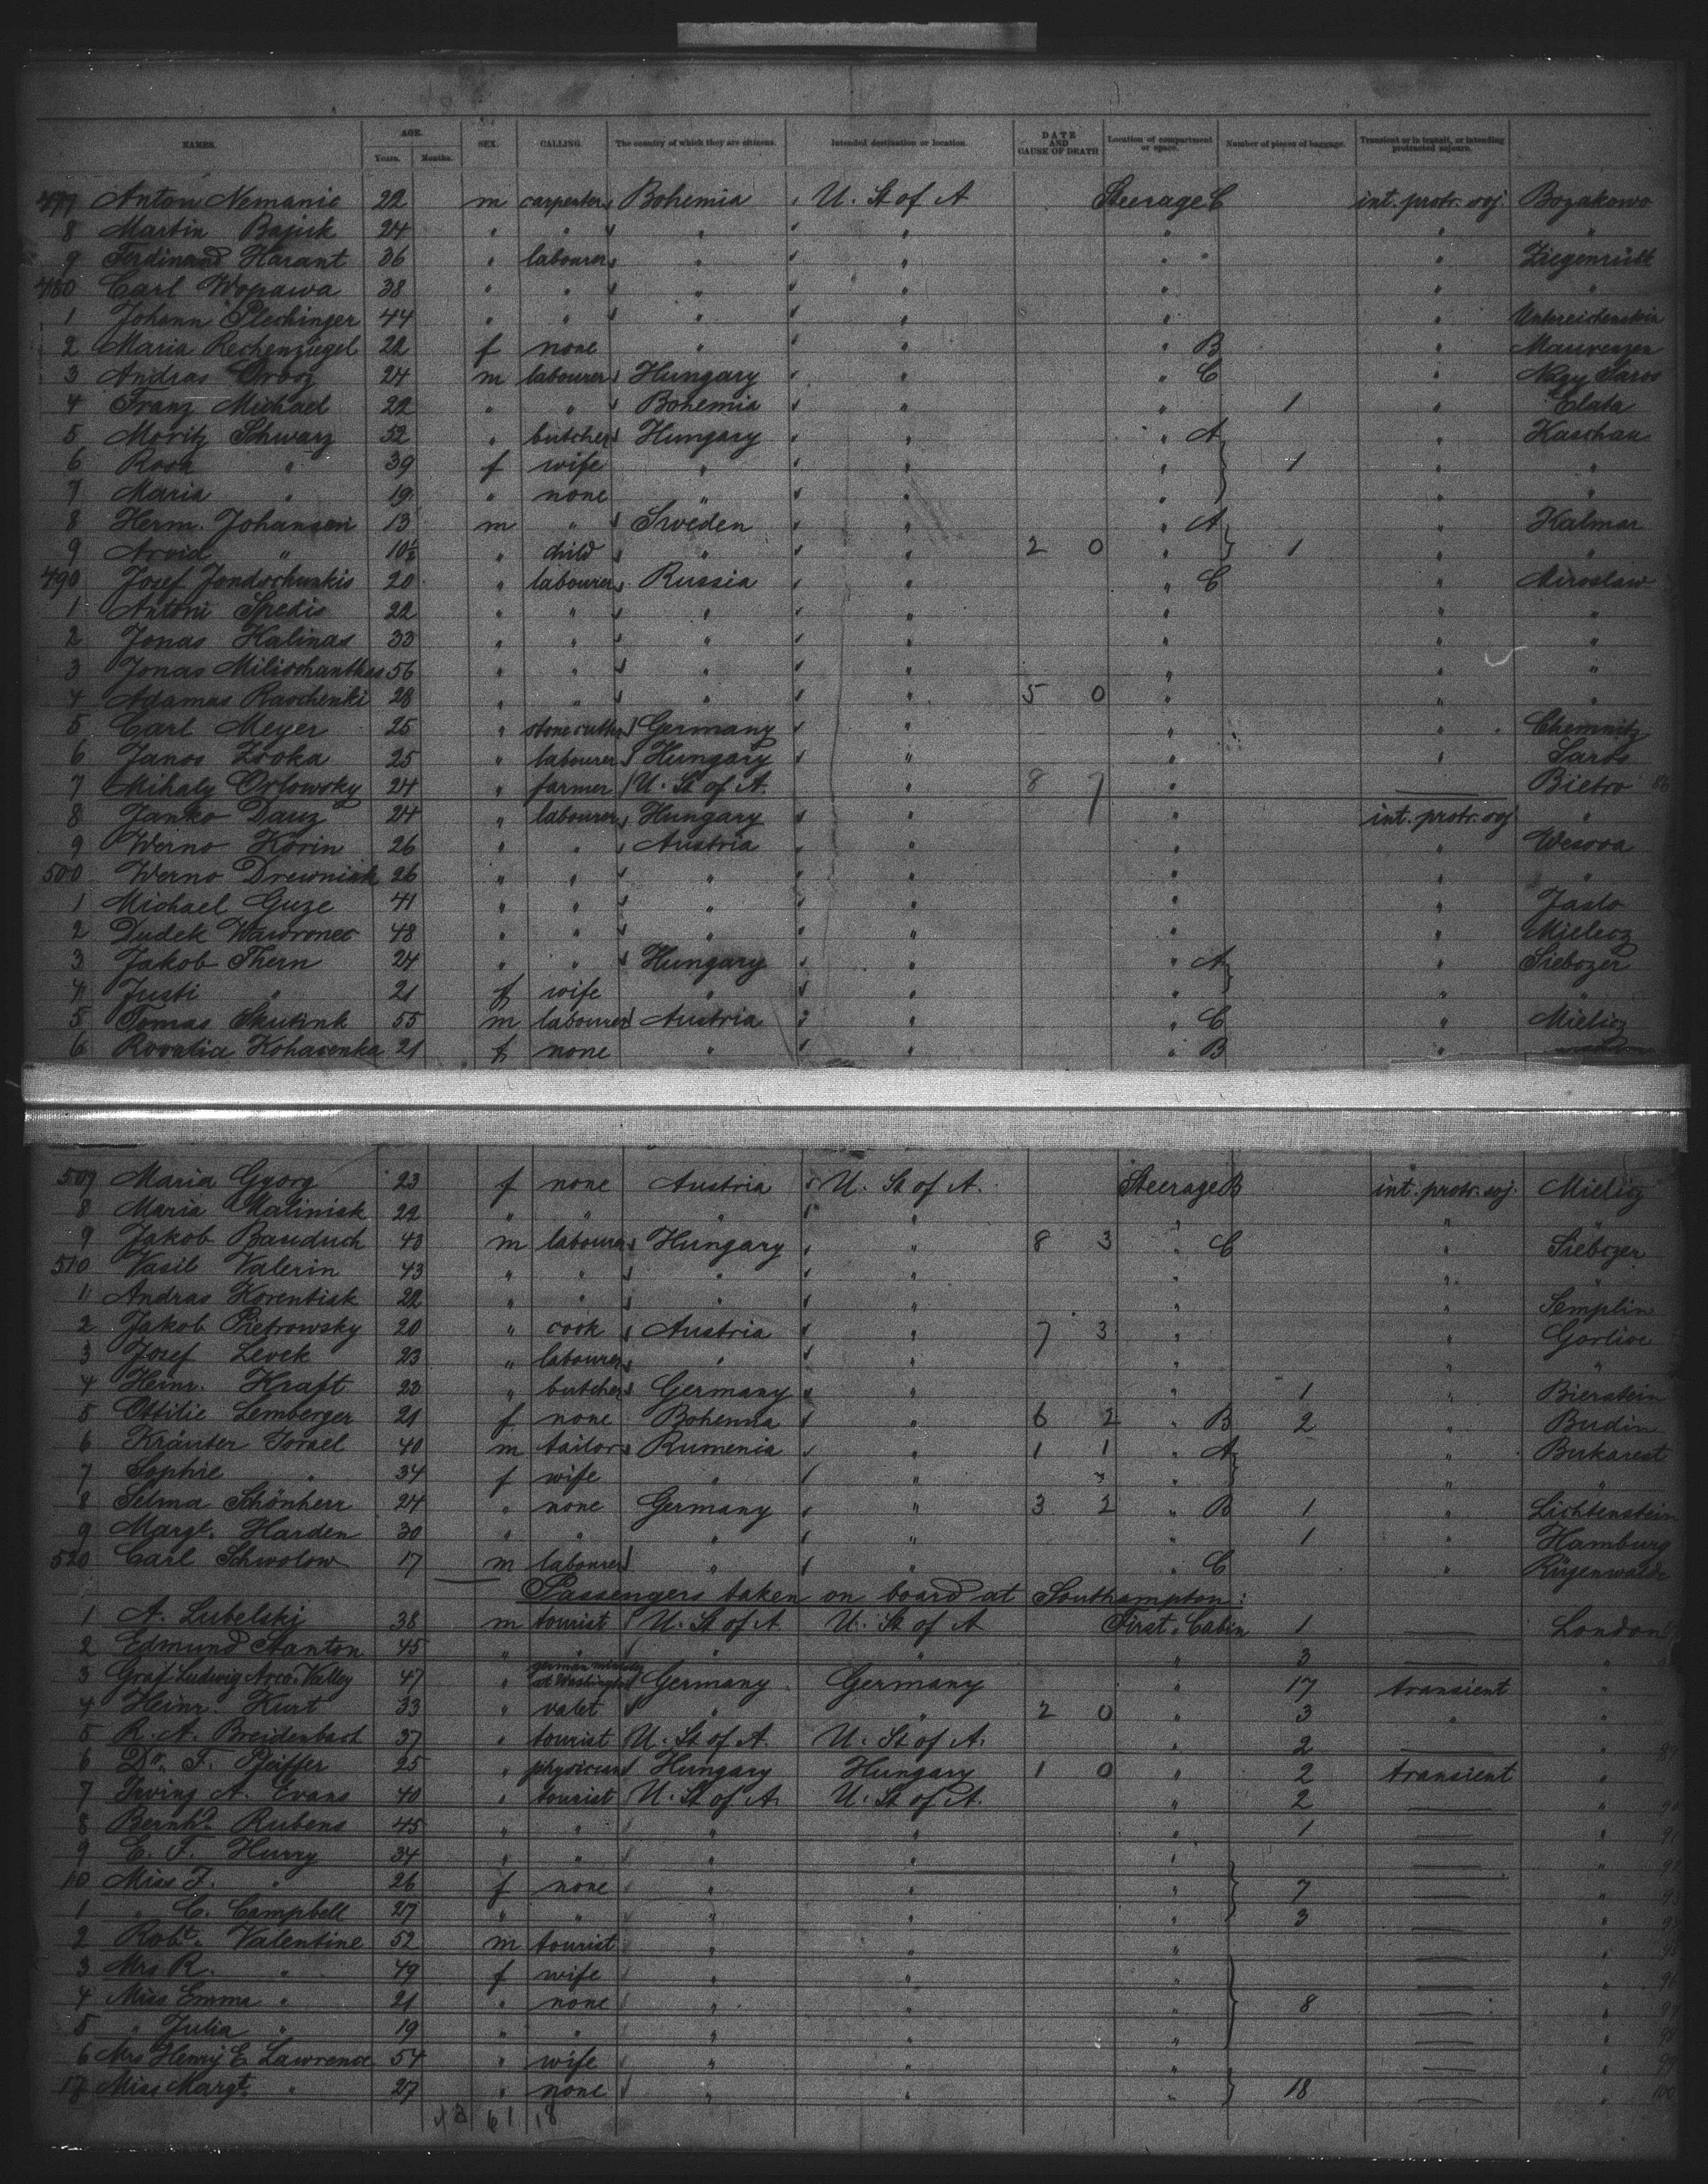 NAMES. AGE. SEX. CALLING. The country of which they are citizens. Intended destination or location. DATE AND CAUSE OF DEATH Location of compartment or space. Number of pieces of baggage. Transient or in transit, or intending protracted sojourn.
Years. Months.
477 Anton Nemanic 22 m carpenter Bohemia U. St of A Steerage C int. protr. soj. Bozakowo
8 Martin Bajuk 24 " " " " " " "
9 Ferdinand Harant 36 " labourer " " " " Ziegenrück
480 Carl Wopawa 38 " " " " " " "
1 Johann Plechinger 44 " " " " " " Unterreichenstein
2 Maria Rechenziegel 22 f none " " " B "
3 Andras Orosz 24 m labourer Hungary " " C " Nagy Saros
4 Franz Michael 22 " " Bohemia " " 1 " Elata
5 Moritz Schwarz 52 " butcher Hungary " " A " Kaschau
6 Rosa " 39 f wife " " " 1 " "
7 Maria " 19 " none " " " " "
8 Herm. Johansen 13 m " Sweden " " A " Kalmar
9 Arvid " 10½ " child " " 2 0 " 1 " "
490 Josef Jondschuskis 20 " labourer Russia " " C " Miroslaw
1 Antoni Spedis 22 " " " " " " "
2 Jonas Kalinas 33 " " " " " " "
3 Jonas Milischanthas 56 " " " " " " "
4 Adamas Raschenki 28 " " " " 5 0 " " "
5 Carl Meyer 25 " stonecutter Germany " " " Chemnitz
6 Janos Zsoka 25 " labourer Hungary " " " Saros
7 Mihaly Orlowsky 24 " farmer U. St of A. " 8 7 " — Bietro 86
8 Janko Dauz 24 " labourer Hungary " " int. protr. soj "
9 Werno Korin 26 " " Austria " " " Wesova
500 Werno Drewniak 26 " " " " " " "
1 Michael Guze 41 " " " " " " Jaslo
2 Dudek Wawronec 48 " " " " " " Mielecz
3 Jakob Thern 24 " " Hungary " " A " Siebozer
4 Justi " 21 f wife " " " " "
5 Tomas Skutnk 55 m labourer Austria " " C " Mielicz
6 Rosalia Kohasenka 21 f none " " " B "
507 Maria Gyorg 23 f none Austria U. St of A. Steerage B int. protr. soj. Mielicz
8 Maria Maliniak 22 " " " " " " "
9 Jakob Bauduch 43 m labourer Hungary " 8 3 " C " Siebozer
510 Vasil Valerin 43 " " " " " " "
11 Andras Korentiak 22 " " " " " " Semplin
2 Jakob Pietrowsky 20 " cook Austria " 7 3 " " Gorlice
3 Josef Levek 23 " labourer " " " " "
4 Heinr. Kraft 23 " butcher Germany " " 1 " Bierstein
5 Ottilie Lemberger 21 f none Bohemia " 6 2 " B 2 " Budin
6 Kräuter Israel 40 m tailor Rumenia " 1 1 " A " Bukarest
7 Sophie " 34 f wife " " " " "
8 Selma Schönherr 24 " none Germany " 3 2 " B 1 " Lichtenstein
9 Margt. Harden 30 " " " " " 1 " Hamburg
520 Carl Schwolow 17 m labourer " " " C " Rügenwalde
Passengers taken on board at Southampton:
1 A. Lubelski 38 m tourist U. St of A U. St of A First Cabin 1 — London
2 Edmund Stanton 45 " " " " " 3 — "
3 Graf Ludwig Arco-Valley 47 " german minister at Washington Germany Germany " 17 transient "
4 Heinr. Kurt 33 " valet " " 2 0 " 3 " "
5 R. A. Breidenbach 37 " tourist U. St of A. U. St of A. " 2 — " 89
6 Dr. F. Pfeiffer 25 " physician Hungary Hungary 1 0 " 2 transient "
7 Irving A. Evans 40 " tourist U. St of A. U. St of A. " 2 — " 90
8 Bernhd. Rubens 45 " " " " " 1 — " 91
9 E. F. Hurry 34 " " " " " — " 92
10 Miss F. " 26 f none " " " 7 — " 93
1 " C. Campbell 27 " " " " " 3 — " 94
2 Robt. Valentine 52 m tourist " " " — " 95
3 Mrs R. " 49 f wife " " " — " 96
4 Miss Emma " 21 " none " " " 8 — " 97
5 " Julia " 19 " " " " " — " 98
6 Mrs Henry E Lawrence 54 " wife " " " — " 99
17 Miss Margt. " 27 " none " " " 18 — " 100
61 18